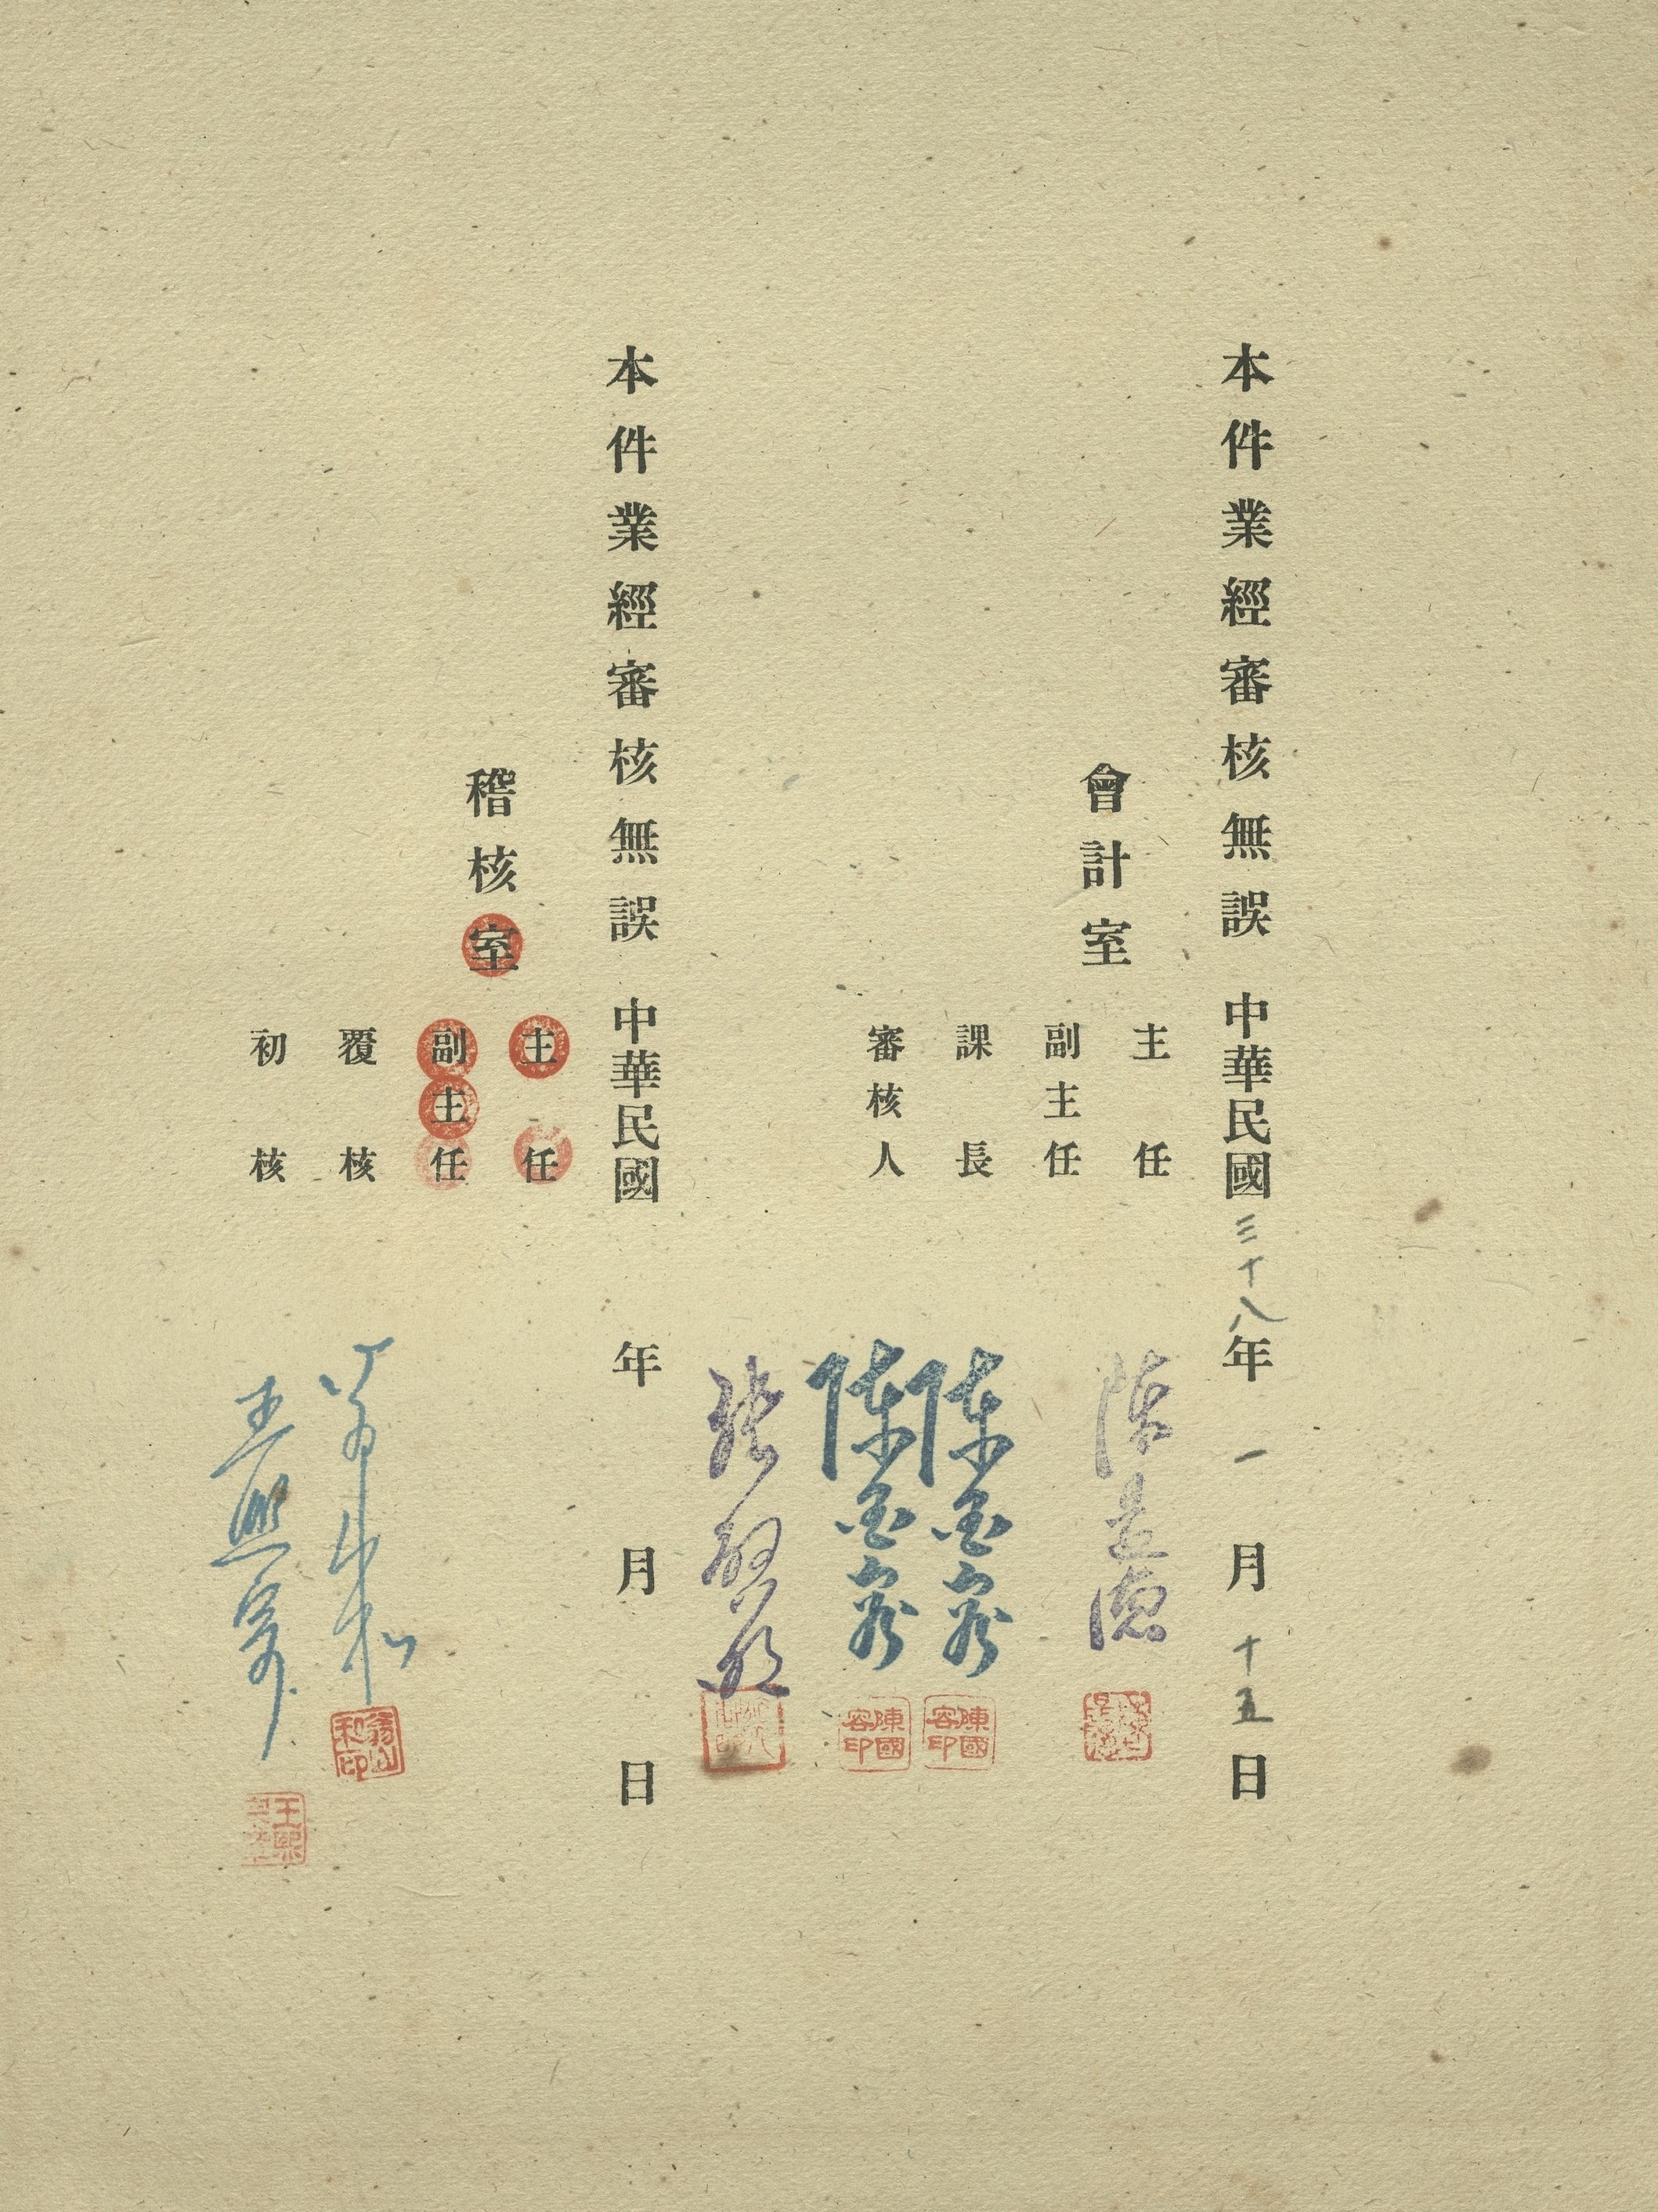 本件業經審核無誤 中華民國三十八年一月十五日
會計室
主任
副主任 陳國容
課長 陳國容
審核人
陳國容印
陳國容印
本件業經審核無誤 中華民國 年 月 日
稽核室
主任
副主任
覆核
翁山和印
初核 王熙
王熙